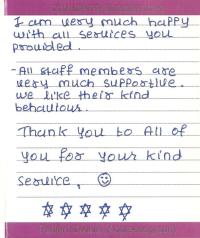 I am very much happy
with all services you
provided.
- All staff members are
very much supportive.
we like their kind
behaviour.
Thank you to All of
you for your kind
service, ☺